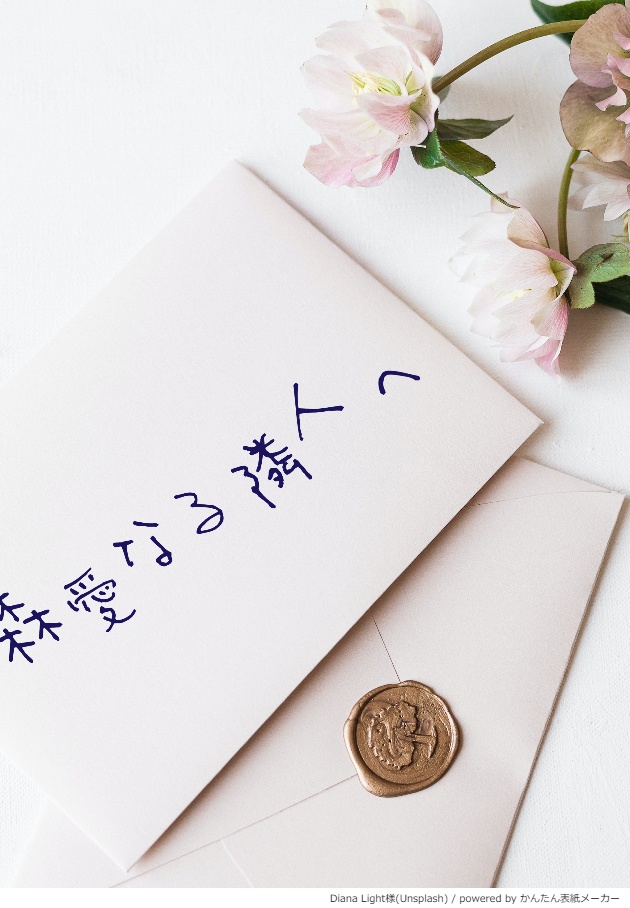 森愛なる隣人へ
Diana Light様(Unsplash) / powered by かんたん表紙メーカー